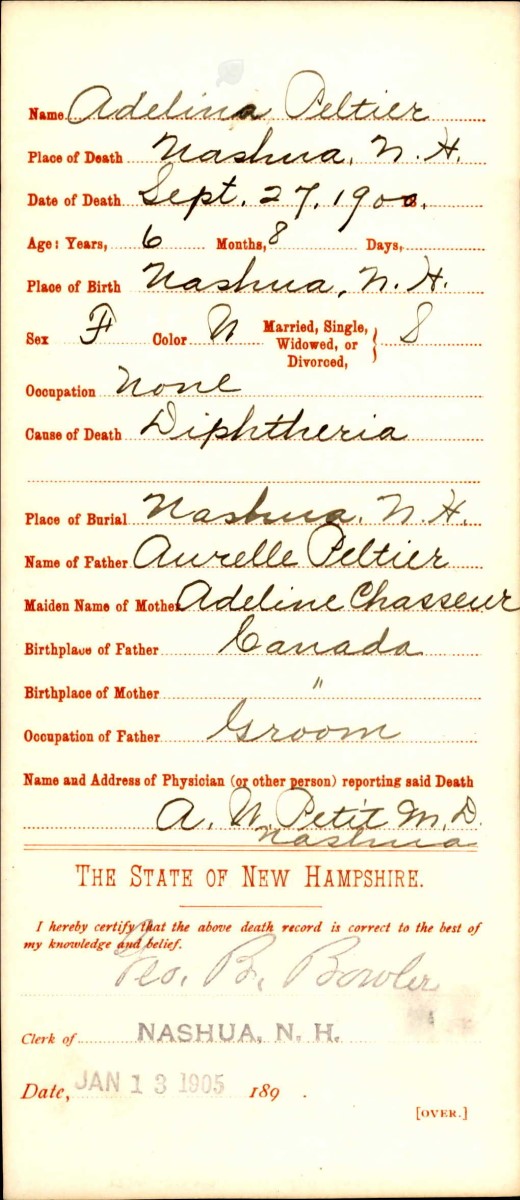 Name Adelina Peltier
Place of Death Nashua, N. H.
Date of Death Sept. 27, 1900.
Age: Years, 6 Months, 8 Days,
Place of Birth Nashua, N. H.
Sex F Color W Married, Single, Widowed, or Divorced, } S
Occupation None
Cause of Death Diphtheria
Place of Burial Nashua, N. H.
Name of Father Aurelle Peltier
Maiden Name of Mother Adeline Chasseur
Birthplace of Father Canada
Birthplace of Mother "
Occupation of Father Groom
Name and Address of Physician (or other person) reporting said Death
A. W. Petit M. D.
Nashua
THE STATE OF NEW HAMPSHIRE.
I hereby certify that the above death record is correct to the best of
my knowledge and belief.
Geo. B. Bowler
Clerk of NASHUA, N. H.
Date, JAN 13 1905 189 .
[OVER.]